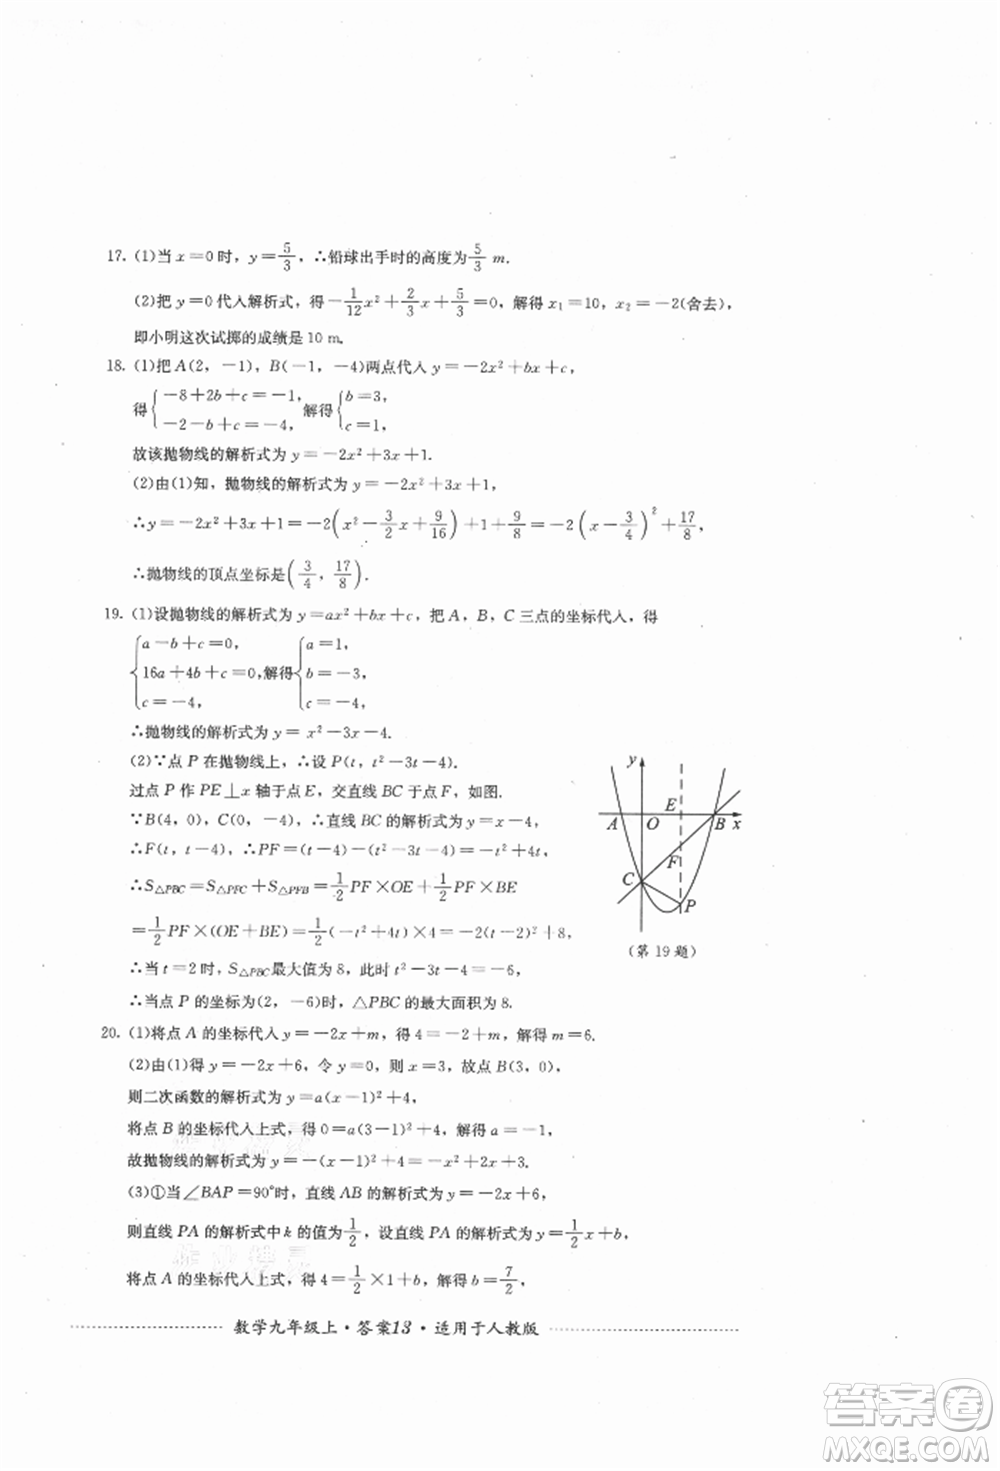 17. (1)当 x=0时, y=5/3, ∴铅球出手时的高度为 5/3 m.
(2)把 y=0代入解析式, 得-1/12x²+2/3x+5/3=0, 解得 x₁=10, x₂=-2(舍去),
即小明这次试掷的成绩是 10 m.
18. (1)把 A(2, -1), B(-1, -4)两点代入 y=-2x²+bx+c,
得{-8+2b+c=-1, -2-b+c=-4, 解得{b=3, c=1,
故该抛物线的解析式为 y=-2x²+3x+1.
(2)由(1)知, 抛物线的解析式为 y=-2x²+3x+1,
∴y=-2x²+3x+1=-2(x²-3/2x+9/16)+1+9/8=-2(x-3/4)²+17/8,
∴抛物线的顶点坐标是(3/4, 17/8).
19. (1)设抛物线的解析式为 y=ax²+bx+c, 把 A, B, C 三点的坐标代入, 得
{a-b+c=0, 16a+4b+c=0, c=-4, 解得{a=1, b=-3, c=-4,
∴抛物线的解析式为 y= x²-3x-4.
(2)∵点 P 在抛物线上, ∴设 P(t, t²-3t-4).
过点 P 作 PE⊥x 轴于点 E, 交直线 BC 于点 F, 如图.
∵B(4, 0), C(0, -4), ∴直线 BC 的解析式为 y=x-4,
∴F(t, t-4), ∴PF=(t-4)-(t²-3t-4)=-t²+4t,
∴S△PBC=S△PFC+S△PFB=1/2PF×OE+1/2PF×BE
=1/2PF×(OE+BE)=1/2(-t²+4t)×4=-2(t-2)²+8,
∴当 t=2时, S△PBC最大值为 8, 此时 t²-3t-4=-6,
∴当点 P 的坐标为(2, -6)时, △PBC 的最大面积为 8.
y
A O E B x
F
C
P
(第 19 题)
20. (1)将点 A 的坐标代入 y=-2x+m, 得 4=-2+m, 解得 m=6.
(2)由(1)得 y=-2x+6, 令 y=0, 则 x=3, 故点 B(3, 0),
则二次函数的解析式为 y=a(x-1)²+4,
将点 B 的坐标代入上式, 得 0=a(3-1)²+4, 解得 a=-1,
故抛物线的解析式为 y=-(x-1)²+4=-x²+2x+3.
(3)①当∠BAP=90°时, 直线 AB 的解析式为 y=-2x+6,
则直线 PA 的解析式中 k 的值为 1/2, 设直线 PA 的解析式为 y=1/2x+b,
将点 A 的坐标代入上式, 得 4=1/2×1+b, 解得 b=7/2,
数学九年级上·答案13·适用于人教版
答案圈
MXQE.COM